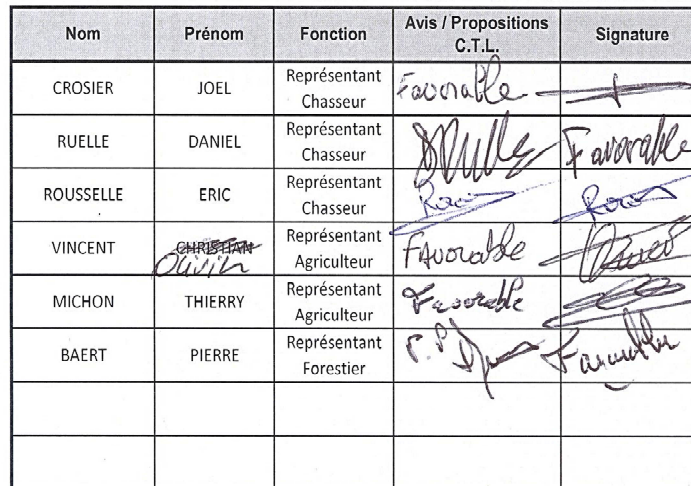 Nom Prénom Fonction Avis / Propositions C.T.L. Signature
CROSIER JOEL Représentant Chasseur Favorable
RUELLE DANIEL Représentant Chasseur Favorable
ROUSSELLE ERIC Représentant Chasseur
VINCENT CHRISTIAN Olivier Représentant Agriculteur FAvorable
MICHON THIERRY Représentant Agriculteur Favorable
BAERT PIERRE Représentant Forestier P.P Favorable